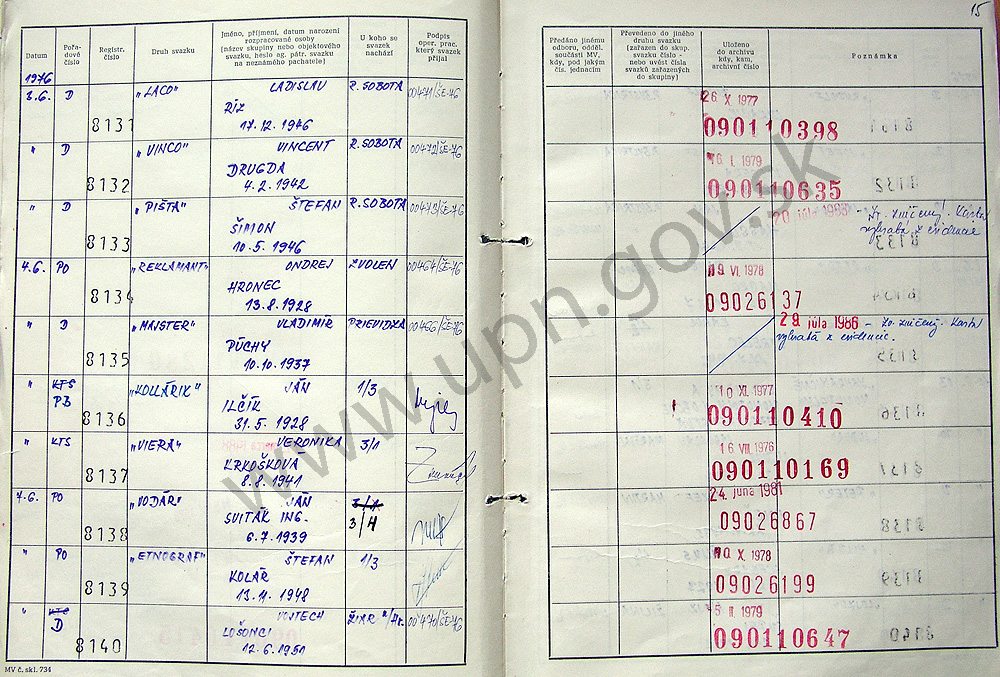 15
Datum
Pořa-
dové
číslo
Registr.
číslo
Druh svazku
Jméno, příjmení, datum narození
rozpracované osoby
(název skupiny nebo objektového
svazku, heslo ag. pátr. svazku
na neznámého pachatele)
U koho se
svazek
nachází
Podpis
oper. prac.
který svazek
přijal
Předáno jinému
odboru, odděl.
součásti MV,
kdy, pod jakým
čís. jednacím
Převedeno do jiného
druhu svazku
(zařazen do skup.
svazku číslo -
nebo uvést čísla
svazků zařazených
do skupiny)
Uloženo
do archivu
kdy, kam,
archivní číslo
Poznámka
1976
3.6. D 8131 „LACO" LADISLAV R. SOBOTA 00471/ŠE-76
17.12.1946
26 X 1977
090110398
" D 8132 „VINCO" VINCENT R. SOBOTA 00472/ŠE-76
DRUGDA
4.2.1942
16. I. 1979
090110635
" D 8133 „PIŠTA" ŠTEFAN R. SOBOTA 00473/ŠE-76
ŠIMON
10.5.1946
20 júla 1985 - Zv. zničený. Karta
vybratá z evidencie
4.6. PO 8134 „REKLAMANT" ONDREJ ZVOLEN 00464/ŠE-76
HRONEC
13.8.1928
19 VI. 1978
09026137
" D 8135 „MAJSTER" VLADIMÍR PRIEVIDZA 00466/ŠE-76
PÚCHY
10.10.1937
29. júla 1986 - Zv. zničený. Karta
vybratá z evidencie.
" KTS PB 8136 „KOLLÁRIK" JÁN 1/3
ILČÍK
31.5.1928
10 XI. 1977
090110410
" KTS 8137 „VIERA" VERONIKA 3/1
KRKOŠKOVÁ
8.8.1941
16 VIII. 1976
090110169
7.6. PO 8138 „VOJÁR" JÁN 3/1
SVITÁK ING. 3/4
6.7.1939
24. júna 1981
09026867
" PO 8139 „ETNOGRAF" ŠTEFAN 1/3
KOLÁR
13.4.1948
10 X. 1978
09026199
" KTS D 8140 VOJTECH 00470/ŠE-76
LOŠONCI
12.6.1951
5 II. 1979
090110647
MV č. skl. 734
www.upn.gov.sk